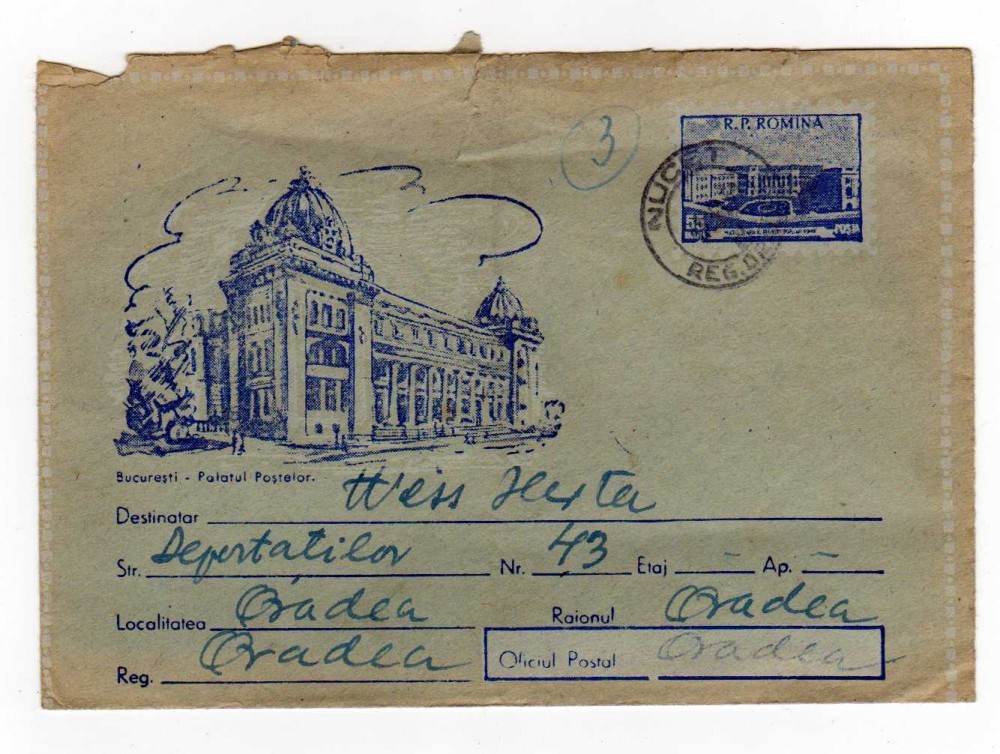 3
R.P. ROMINA
NUCET
REG. OR
55
BANI
POSTA
București - Palatul Poștelor.
Destinatar Weiss Herta
Str. Deportatilor Nr. 43 Etaj — Ap. —
Localitatea Oradea Raionul Oradea
Reg. Oradea Oficiul Postal Oradea